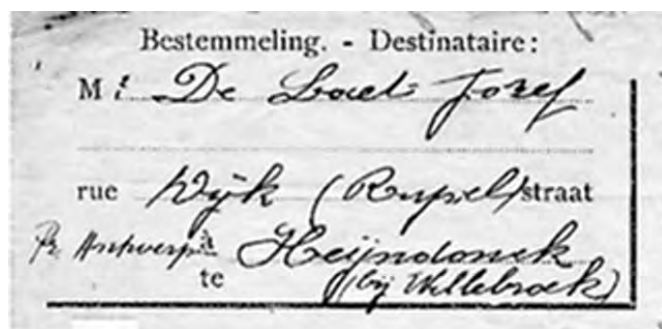 Bestemmeling. - Destinataire:
M: De Baet Jozef
rue Wijk (Rupel) straat
Pr. Antwerpen à Heijndonck
te (bij Willebroek)